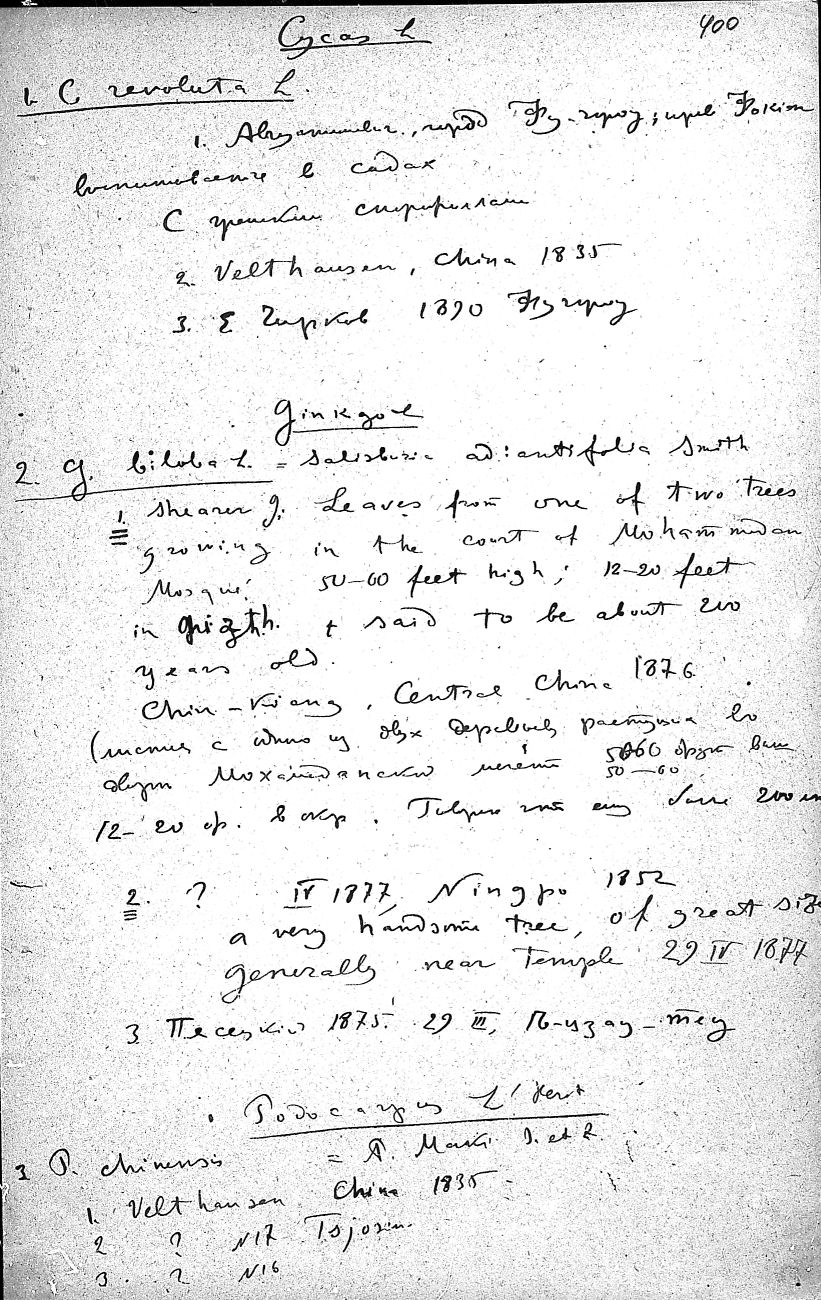 400
Cycas L
1. C revoluta L.
1. город Фу-город; пров Фокин
в садах
С
2. Velthausen, China 1835
3. Е Чирков 1890 Фу город
Ginkgo L
2. G. biloba L. = Salisburia adiantifolia Smith
1. Shearer G. Leaves from one of two trees
growing in the court of Mohammedan
Mosque. 50-60 feet high; 12-20 feet
in girth. + said to be about 200
years old.
Chin-Kiang, Central China 1876
(листья с одного из двух деревьев растущих во
дворе Мохамеданской мечети 50-60
50-60
12-20 ф. в окр. Говорят что ему более 200
2. ? IV 1877, Ningpo 1852
a very handsome tree, of great size
generally near Temple 29 IV 1877
3 Пясецкий 1875. 29 III,
Podocarpus L'Herit
3 P. chinensis = P. Maki S. et Z.
1. Velthausen China 1835
2 ? N17
3. ? N16